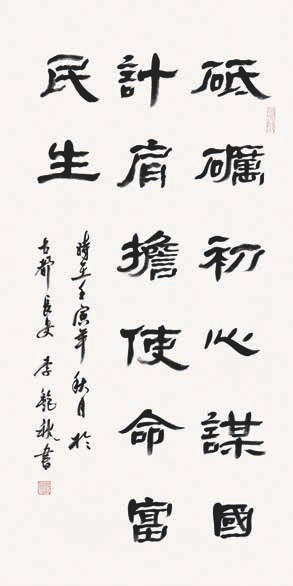 砥礪初心謀國
計肩擔使命富
民生
時在壬寅年秋月於
古都長安李龍秋書